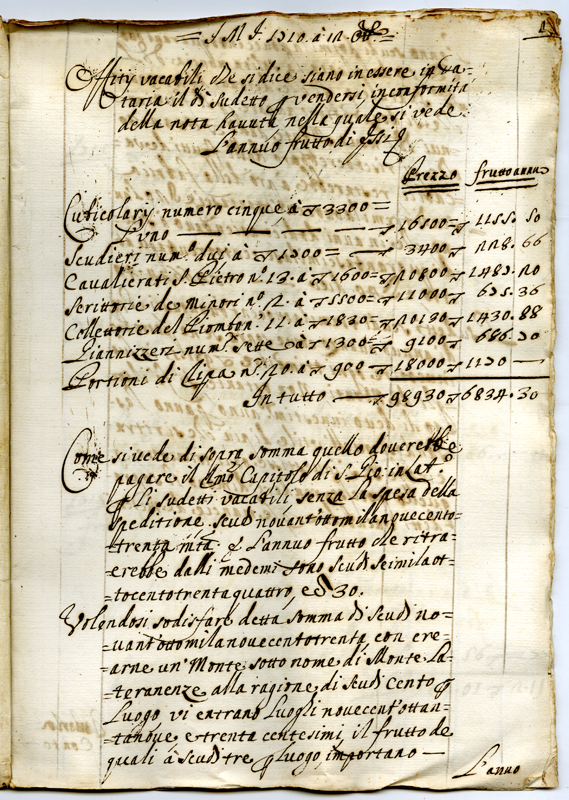 = I M I. 1710. à 12. =
1
Offitij vacabili, che si dice siano in essere in Da=
taria il dì sudetto p vendersi in conformità
della nota havuta nella quale si vede
L'annuo frutto di essi
Prezzo frutto annuo
Cubicolarij numero cinque à ∇ 3300=
L'uno — — — — ∇ 16500= ∇ 1155. 50
Scudieri num.º duj à ∇ 1700= — ∇ 3400 ∇ 228. 66
Cavalierati S. Pietro n.º 13. à ∇ 1600= ∇ 20800 ∇ 1485. 20
Scrittorie de minori n.º 2. à ∇ 5500= ∇ 11000 ∇ 675. 36
Collettorie del Piombo n.º 11. à ∇ 1830= ∇ 20130 ∇ 1430. 88
Giannizzeri num.º sette à ∇ 1300= ∇ 9100 ∇ 686. 70
Portioni di Ripa n.º 20. à ∇ 900= ∇ 18000 ∇ 1170 —
In tutto — ∇ 98930 ∇ 6834. 30
Come si vede di sopra somma quello doverebbe
pagare il Rmo Capitolo di S. Gio: in Lat.º
p li sudetti vacabili, senza la spesa della
speditione scudi novant'ottomilanovecento=
=trenta mta. e L'annuo frutto che ritra=
=erebbe dalli medemi sono scudi seimilaot=
=tocentotrenta quattro, e d 30.
Volendosi sodisfare detta somma di scudi no=
=vant'ottomilanovecentotrenta con cre=
=arne un'Monte sotto nome di Monte La=
=teranenze alla ragione di scudi cento p
Luogo vi entrano Luoghi novecent'ottan=
=tanove e trenta centesimi, il frutto de
quali à scudi tre p luogo importano —
L'anuo